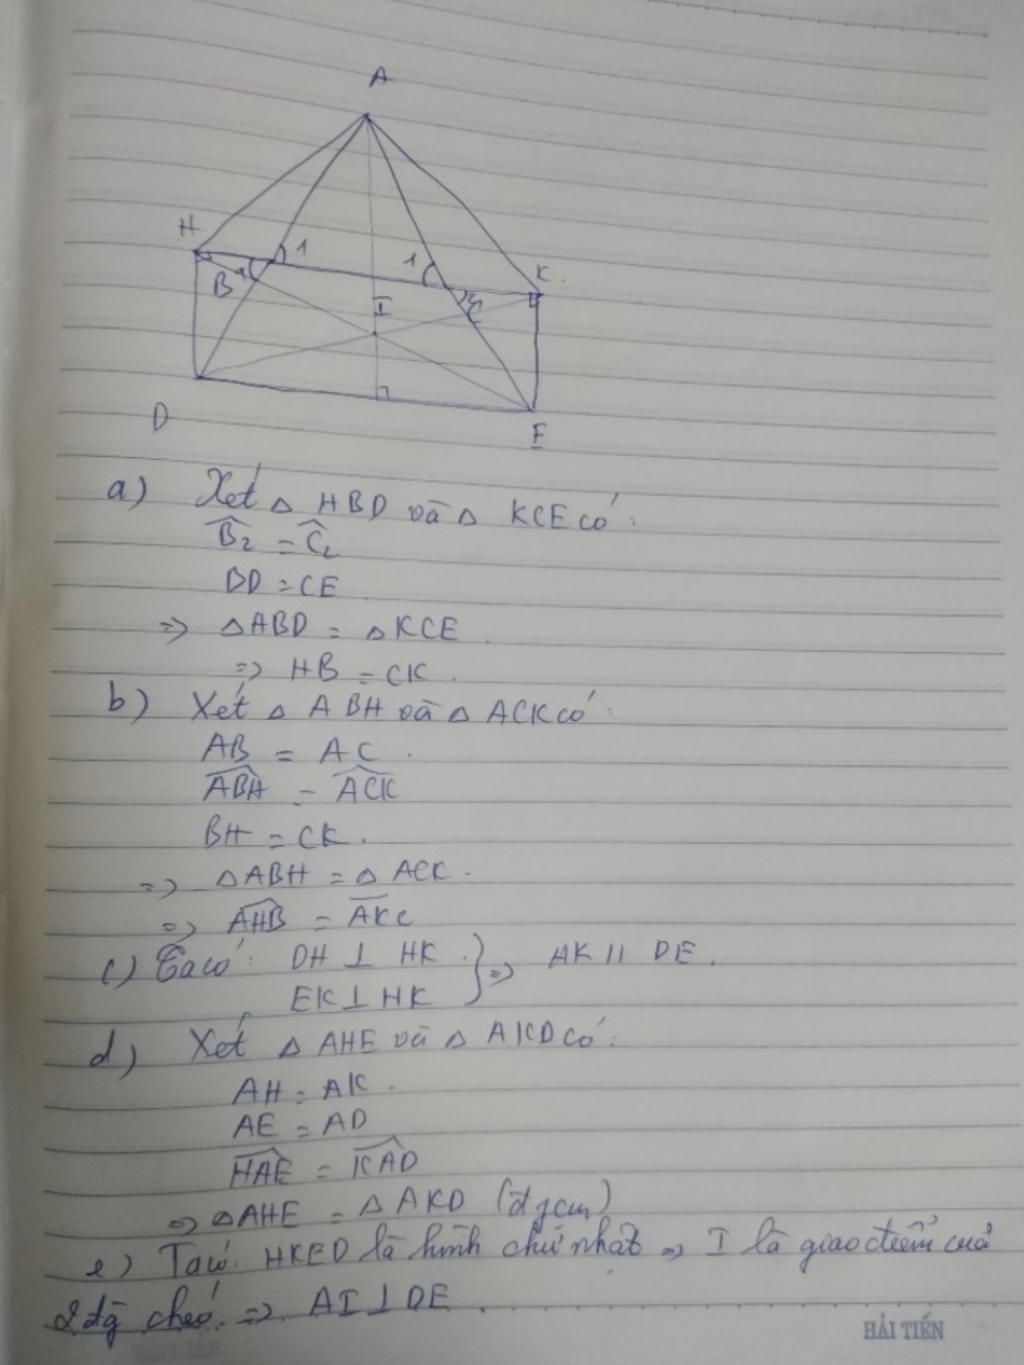 A
H
1
1
K
B
2
I
2
C
D
E
a) Xét △ HBD và △ KCE có:
B̂₂ = Ĉ₂
BD = CE
=> △ABD = △KCE.
=> HB = CK.
b) Xét △ ABH và △ ACK có:
AB = AC.
ABH = ACK
BH = CK.
=> △ABH = △ ACK.
=> AHB = AKC
c) Ta có: DH ⊥ HK. } => AK // DE.
EK ⊥ HK
d) Xét △ AHE và △ AKD có:
AH = AK.
AE = AD
HAE = KAD
=> △AHE = △AKD (đpcm)
e) Ta có: HKED là hình chữ nhật => I là giao điểm của
2 đg chéo. => AI ⊥ DE.
HẢI TIẾN